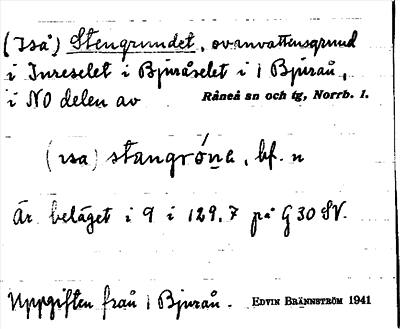 (Iså) Stengrundet, ovanvattensgrund
i Inreselet i Bjuråselet i 1 Bjurån,
i NO delen av Råneå sn och tg, Norrb. l.
(ısa) stangrǿna, bf. n
Är beläget i 9 i 129,7 på G 30 SV.
Uppgiften från 1 Bjurån. EDVIN BRÄNNSTRÖM 1941